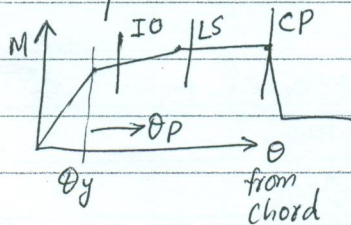 IO LS CP
M
→ θP
θy θ
from
chord